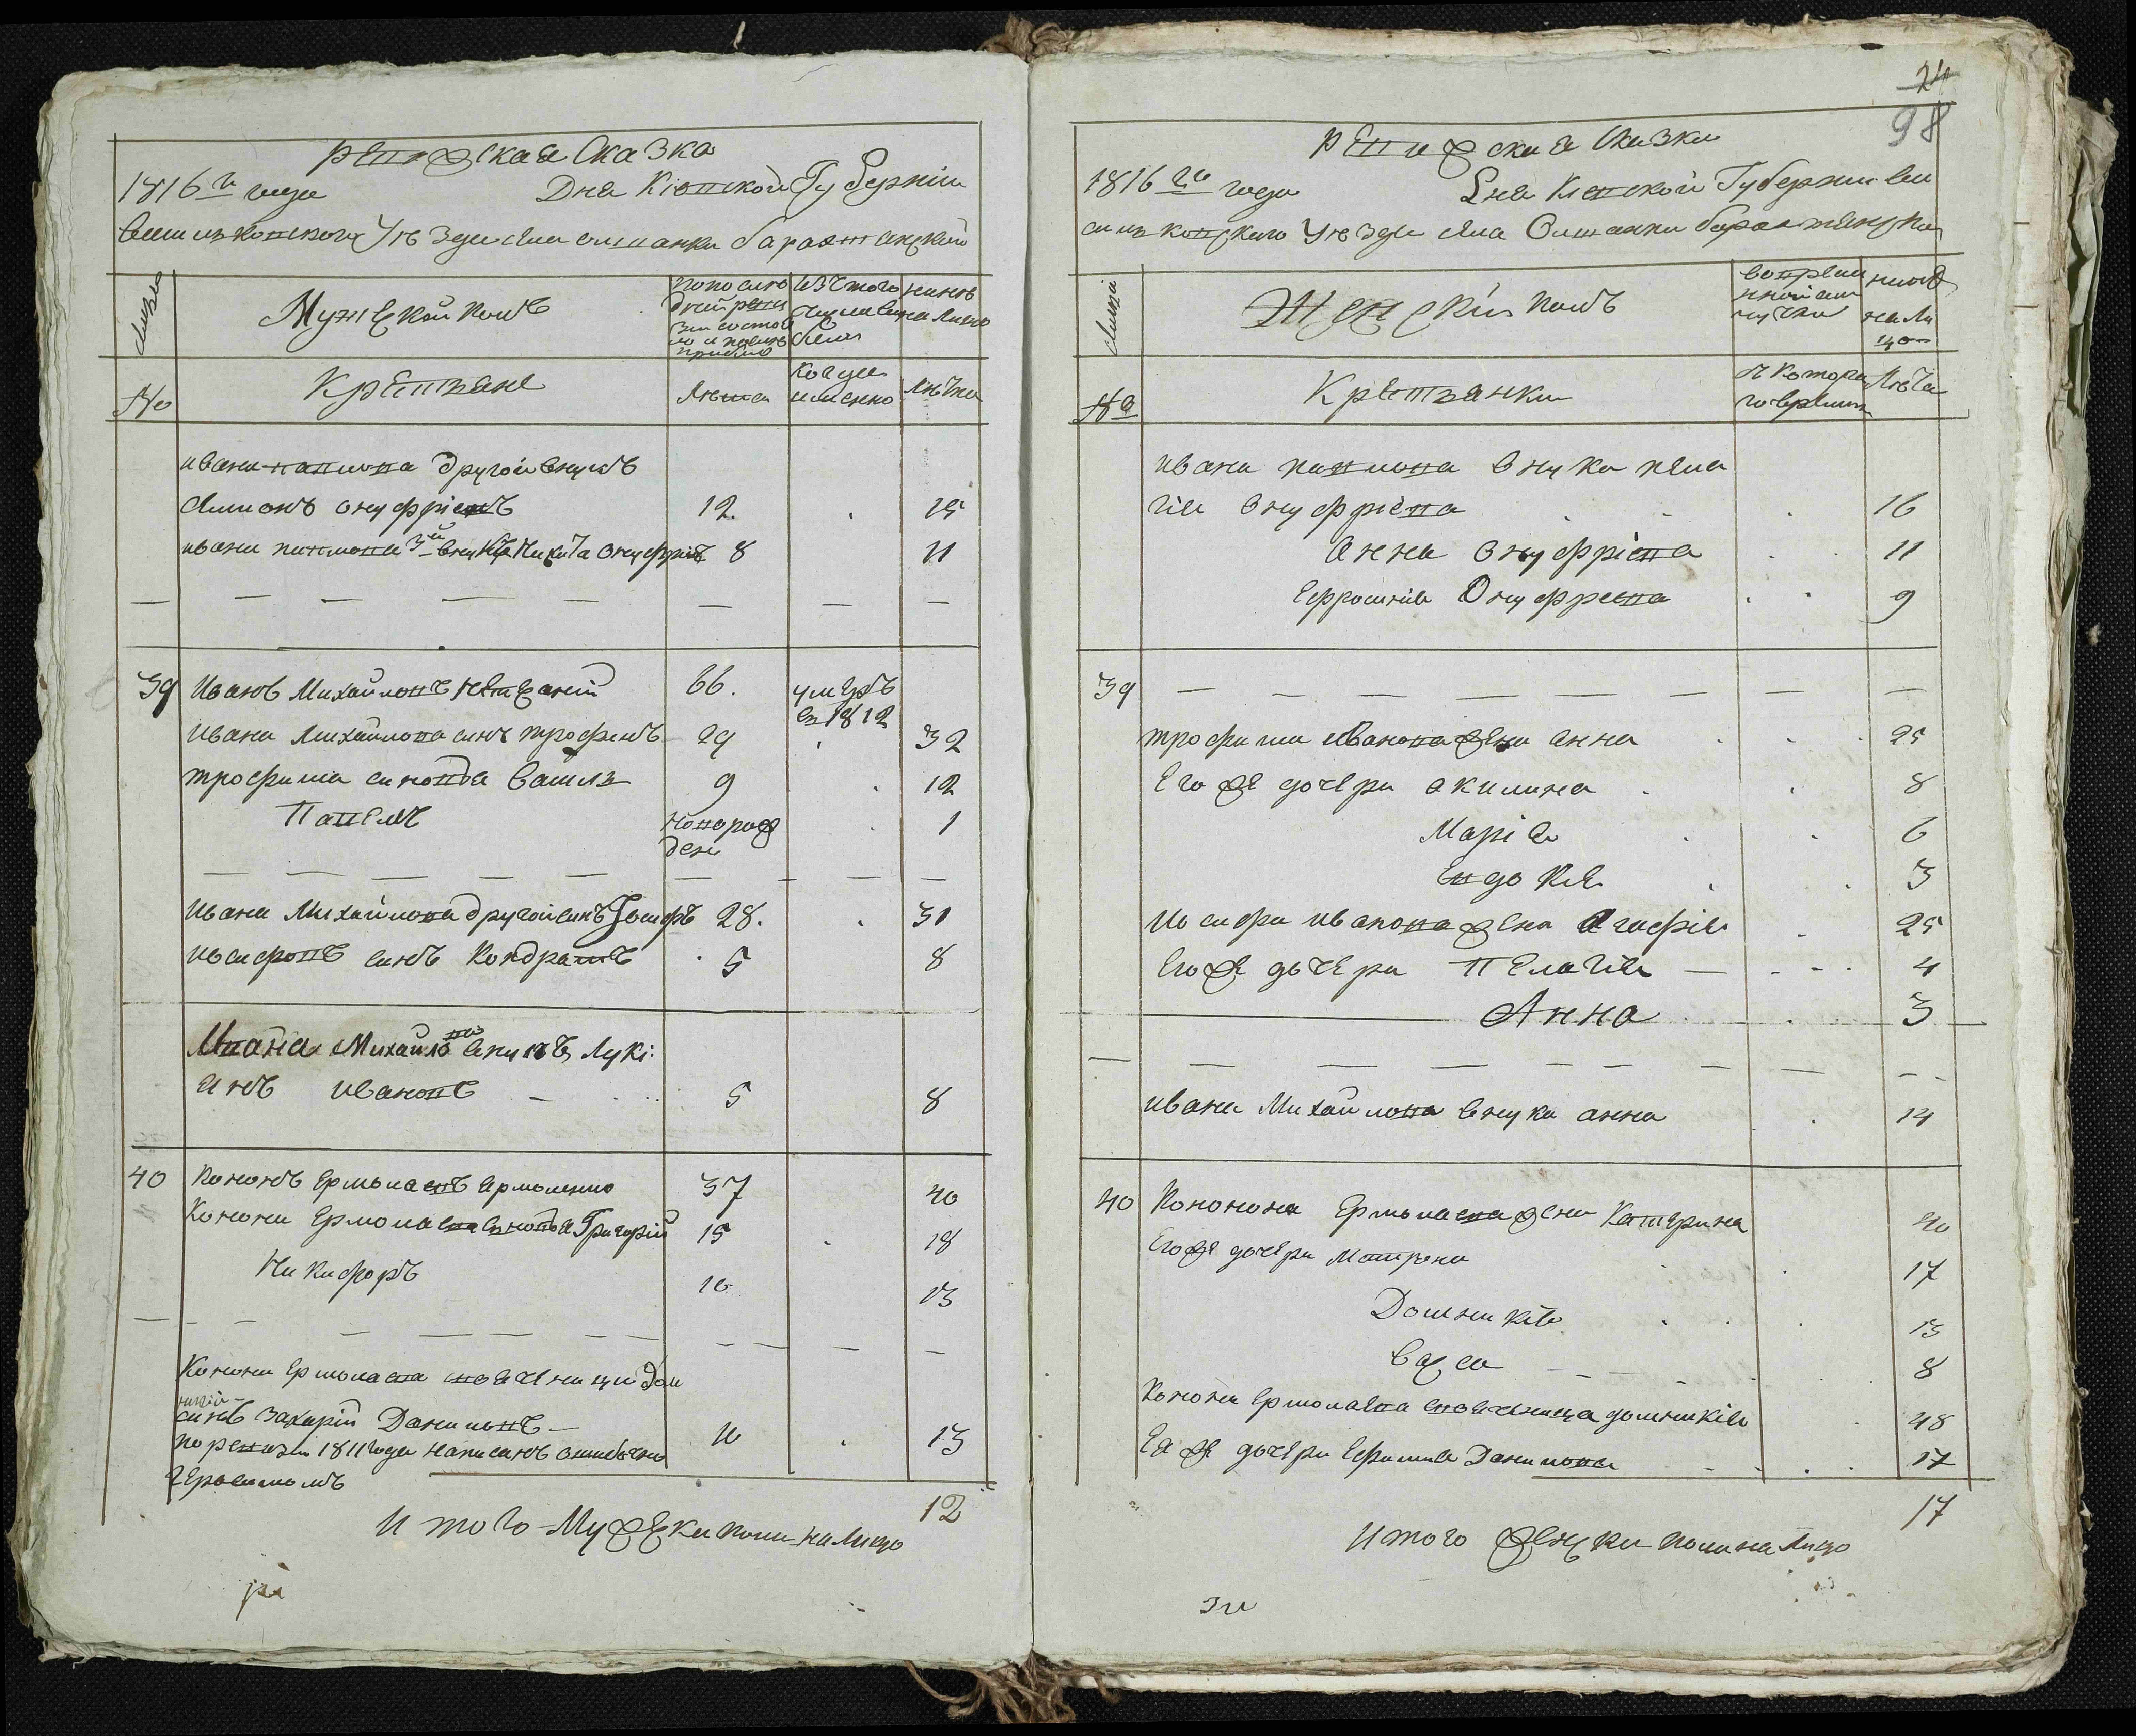 Ревижская Сказка
1816го года Дня Кіевской Губерніи
Васильковского Уезда села ольшанки баратанской
Мужеской полъ
по последней ревизіи состояло и после прибыло
Изъ того числа выбыло
ныне на лицо
№
Крестьяне
Лета
Когда именно
Лета
ивана павлова другой внукъ
Симионъ онуфріевъ 12 15
ивана павлова 3й внукъ Никита онуфріевъ 8 11
39 Иванъ Михайловъ 66. умеръ
въ 1812
Ивана Михайлова синъ трофимъ 29 32
трофима синовья Василь 9 12
Павелъ новорож 1
ден
Ивана Михайлова другой синъ Іосифъ 28. 31
Иосифовъ синъ Кондратъ 5 8
Ивана Михайло внукъ Лукі:
янъ Ивановъ 5 8
40 Кононъ Ермолаевъ Ермоленко 37 40
Конона Ермолаева синовья Григорій 15 18
Никифоръ 10 13
Конона Ермолаева своячиници дом
никіи
синъ Захарій Даниловъ 10 13
по ревизіи 1811 года написанъ ошибочно
Герасимомъ
12
Итого Мужеска пола на лицо
24
98
Ревижская Сказка
1816го года Дня Кіевской Губерніи Ва
сильковского Уезда села Ольшанки баратанской
Женскій полъ
во временной отлучке
ныне на лицо
№
Крестьянки
съ котораго времени
Лета
ивана павлова внука пела
гія Онуфріева 16
Анна Онуфріева 11
Ефросинія Онуфрева 9
39
трофима Иванова жена анна 25
Его же дочери акилина 8
Марія 6
Евдокія 3
Иосифа иванова жена Агафія 25
Его же дочери Пелагія 4
Анна 3
ивана Михайлова внука анна 14
40 Конона Ермолаева жена Катерина 40
Его же дочери Матрона 17
Домникія 13
Васса 8
Конона Ермолаева своячиница домникія 48
Ея же дочери Ефимия Данилова 17
17
Итого женска пола на лицо